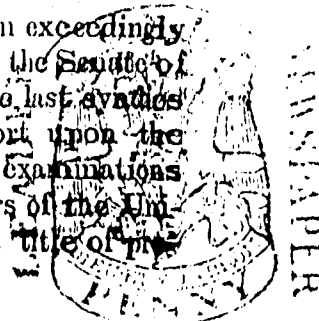 n exceedingly
the Senate of
last
ort upon the
examinations
rs of the Uni-
title of pro-
PENNY
NEWSPAPER